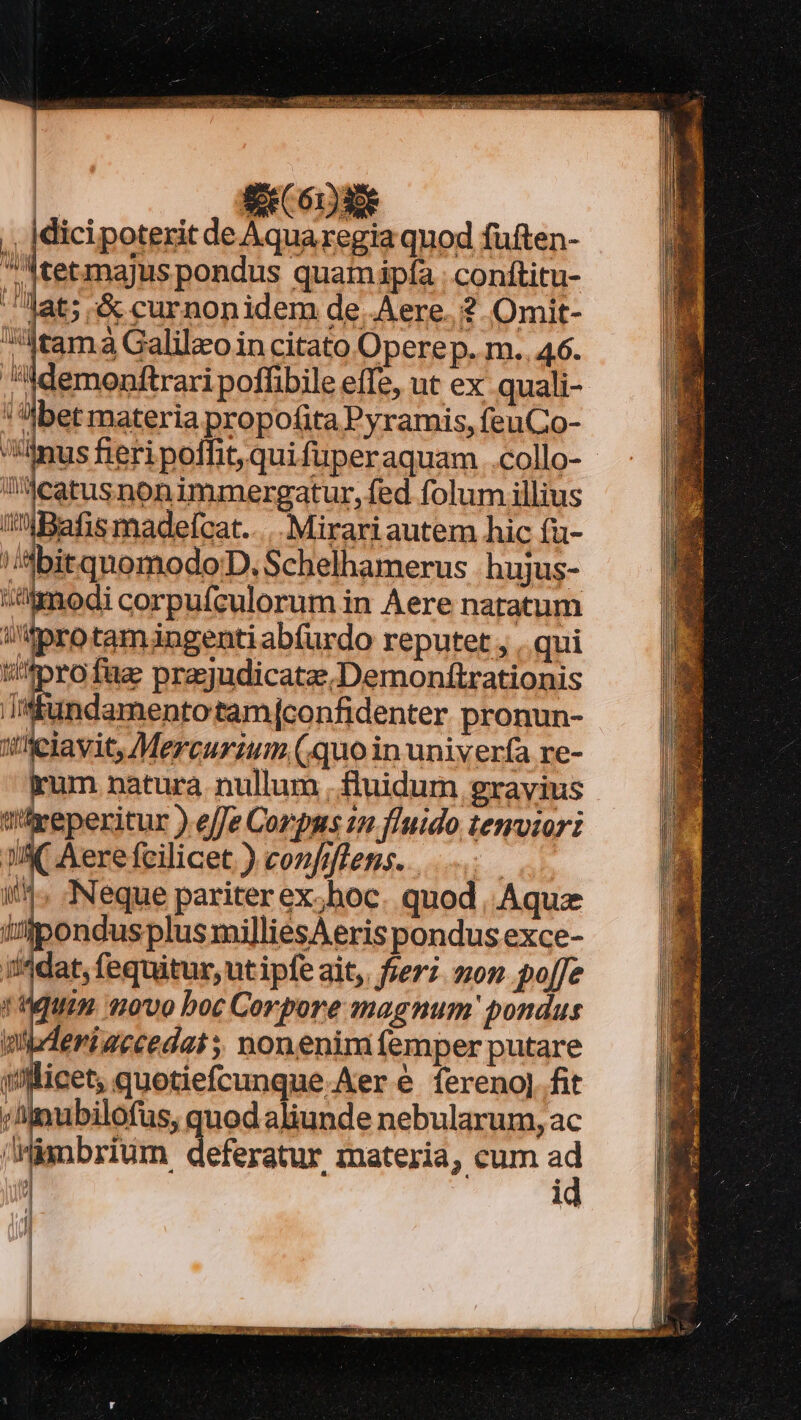 (61)
dici poterit de Aqua regia quod ſuſten-
tet majus pondus quam ipſa conſtitu-
at; & cur non idem de Aere? Omit-
tam à Galilæo in citato Opere p. m. 46.
demonſtrari poſſibile eſſe, ut ex quali-
bet materia propoſita Pyramis, ſeu Co-
nus fieri poſſit, qui ſuper aquam collo-
catus non immergatur, ſed ſolum illius
Baſis madeſcat. Mirari autem hic ſu-
bit quomodo D. Schelhamerus hujus-
modi corpuſculorum in Aere natatum
pro tam ingenti abſurdo reputet, qui
pro ſuæ præjudicatæ Demonſtrationis
fundamento tam confidenter pronun-
ciavit, Mercurium (quo in univerſa re-
rum natura nullum fluidum gravius
reperitur) eſſe Corpus in fluido tenuiori
(Aere ſcilicet) conſiſtens.
Neque pariter ex hoc quod Aquæ
pondus plus millies Aeris pondus exce-
dat, ſequitur, ut ipſe ait, fieri non poſſe
quin novo hoc Corpore magnum pondus
accedat; non enim ſemper putare
licet, quotieſcunque Aer è ſereno fit
nubiloſus, quod aliunde nebularum, ac
imbrium deferatur materia, cum ad
id